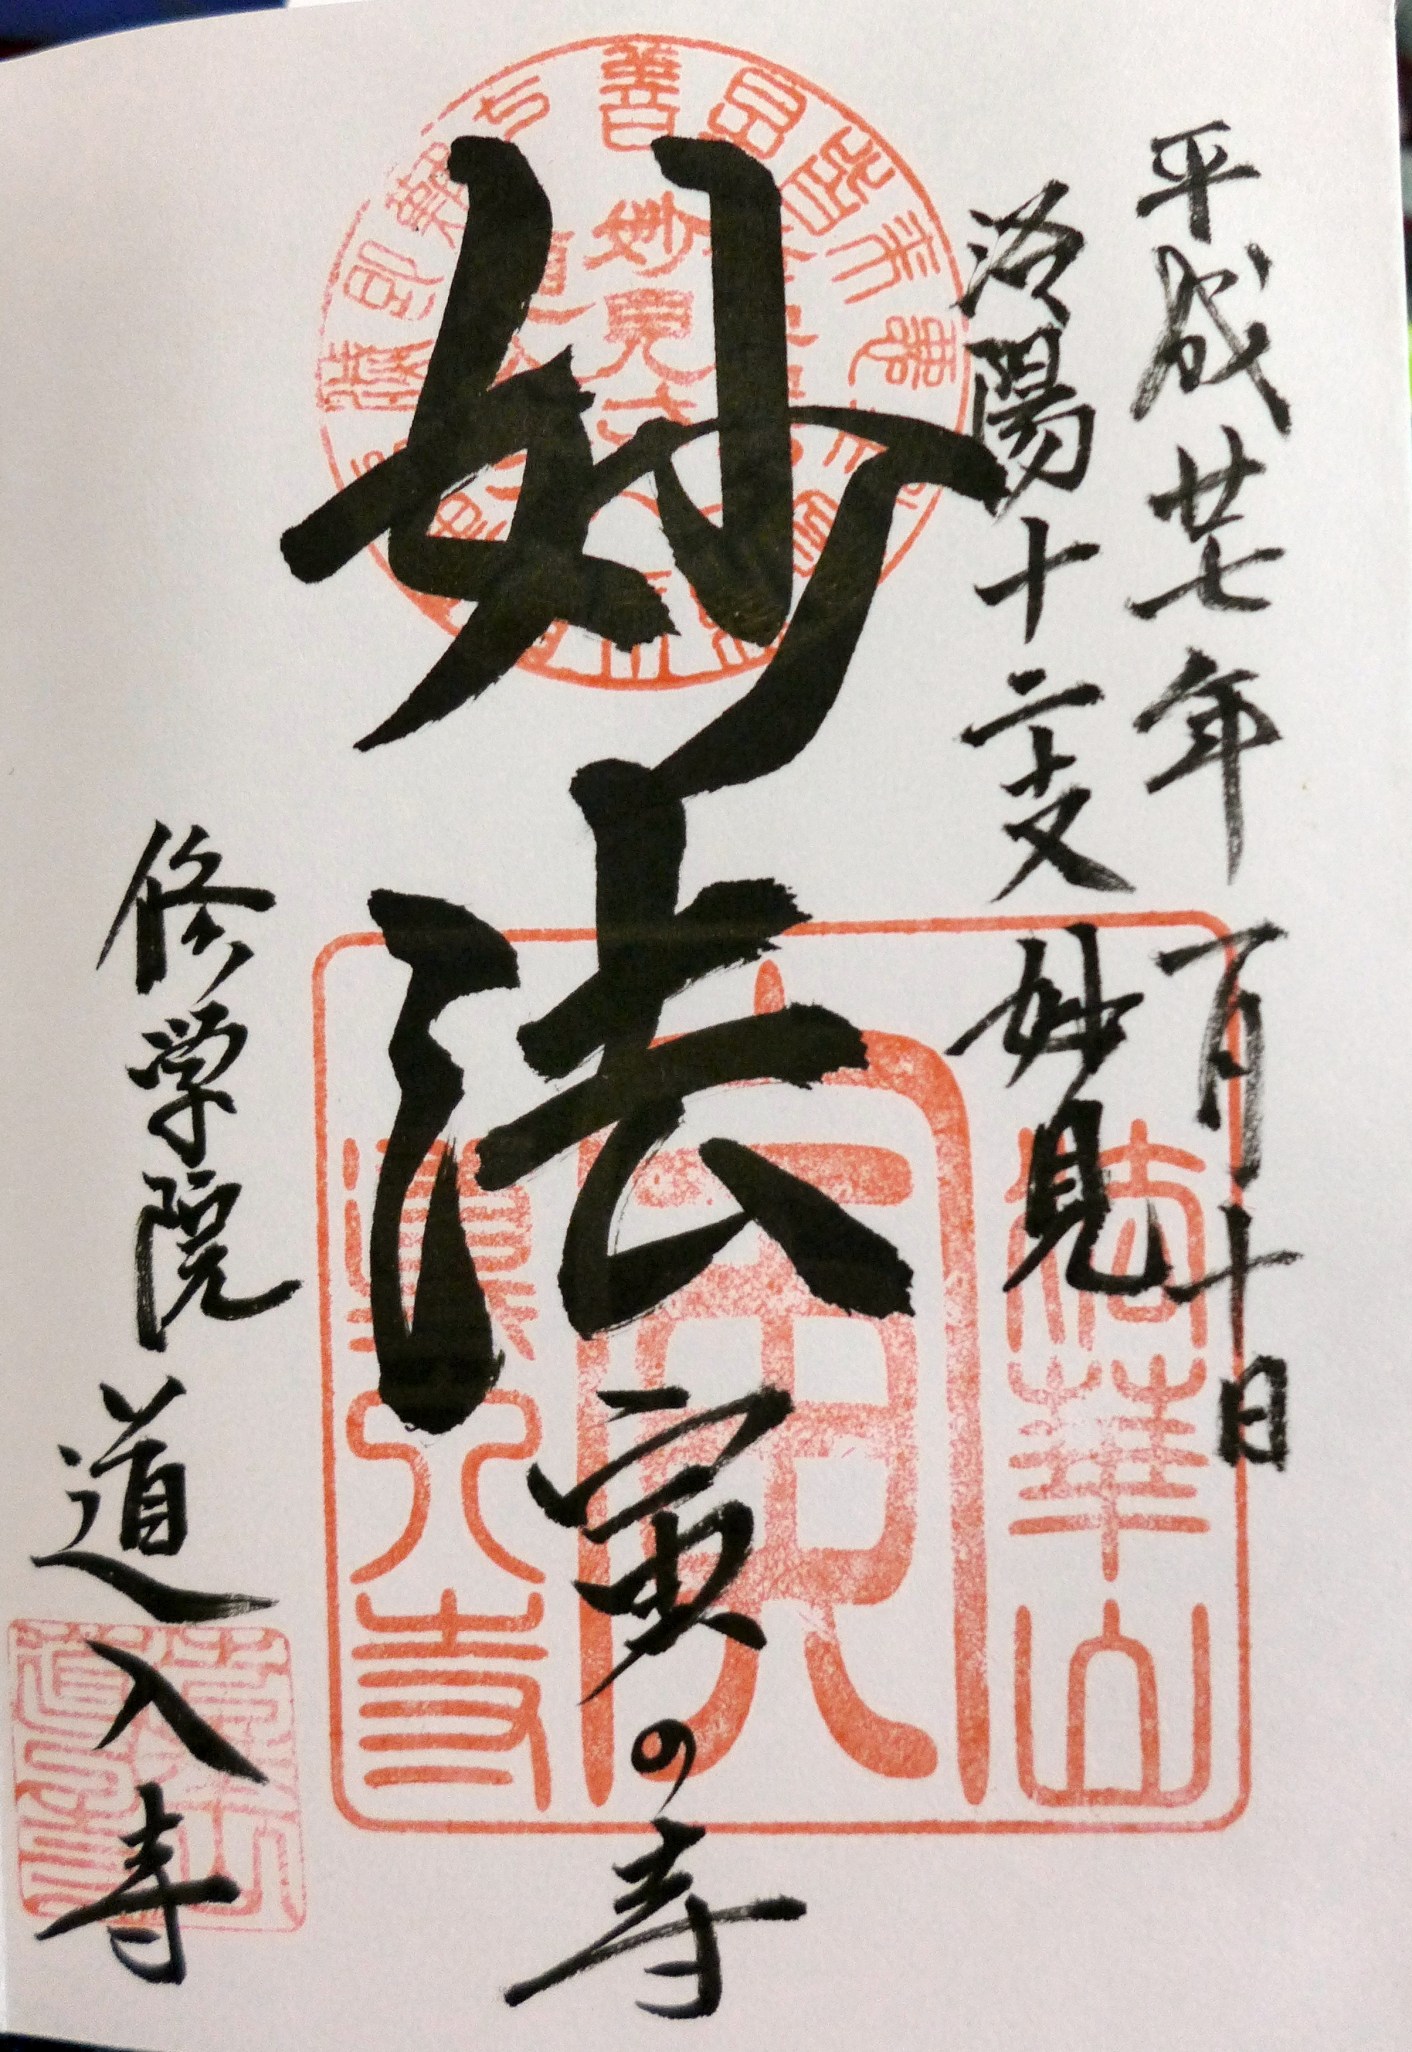 平成廿七年一月十日
洛陽十二支妙見
妙法
寅の寺
修学院 道入寺
法華山
寅
道入寺